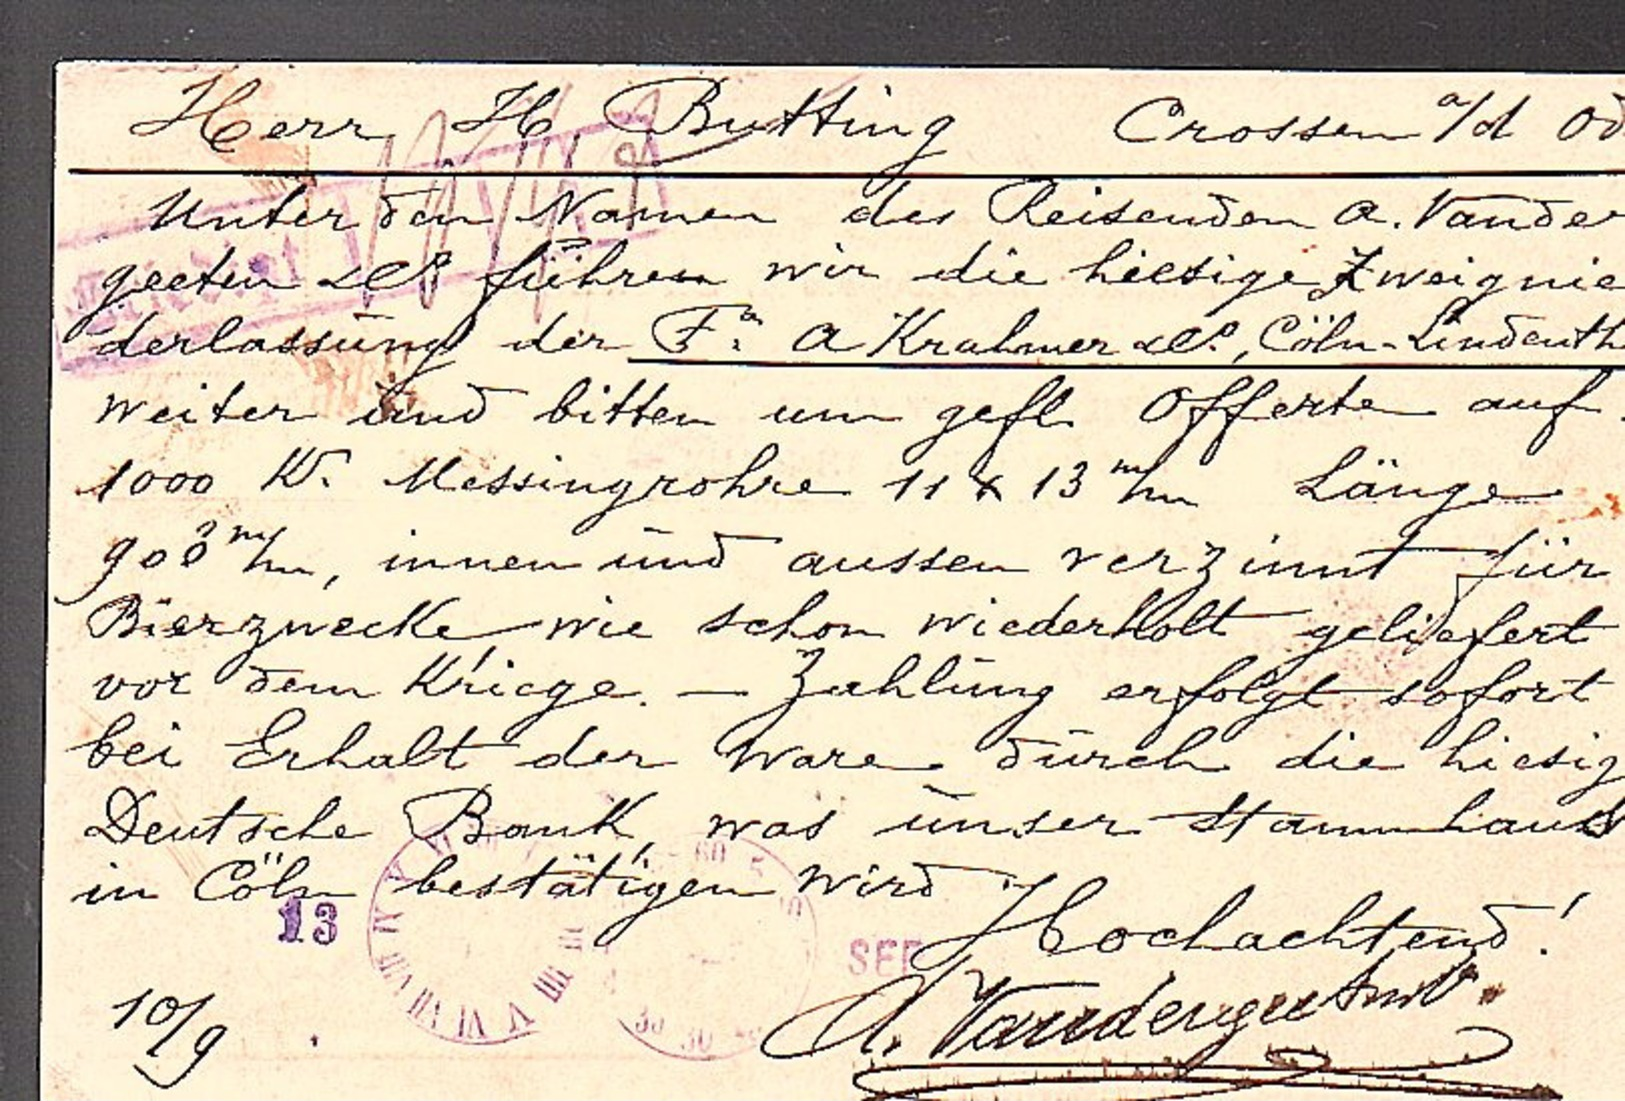 Herr H. Butting Crossen a/d Od
Unter den Namen des Reisenden A. Vander
geeten & Co führen wir die hiesige Zweignie
derlassung der Fa. A Krahmer & Co., Cöln-Lindenth
weiter und bitten um gefl. Offerte auf
1000 K. Messingrohre 11 x 13 m/m Länge
900 m/m, innen und aussen verzinnt für
Bierzwecke wie schon wiederholt geliefert
vor dem Kriege. — Zahlung erfolgt sofort
bei Erhalt der Ware durch die hiesig
Deutsche Bank, was unser Stammhaus
in Cöln bestätigen wird
13
Hochachtend!
SEP
10/9
A. Vandergeeten